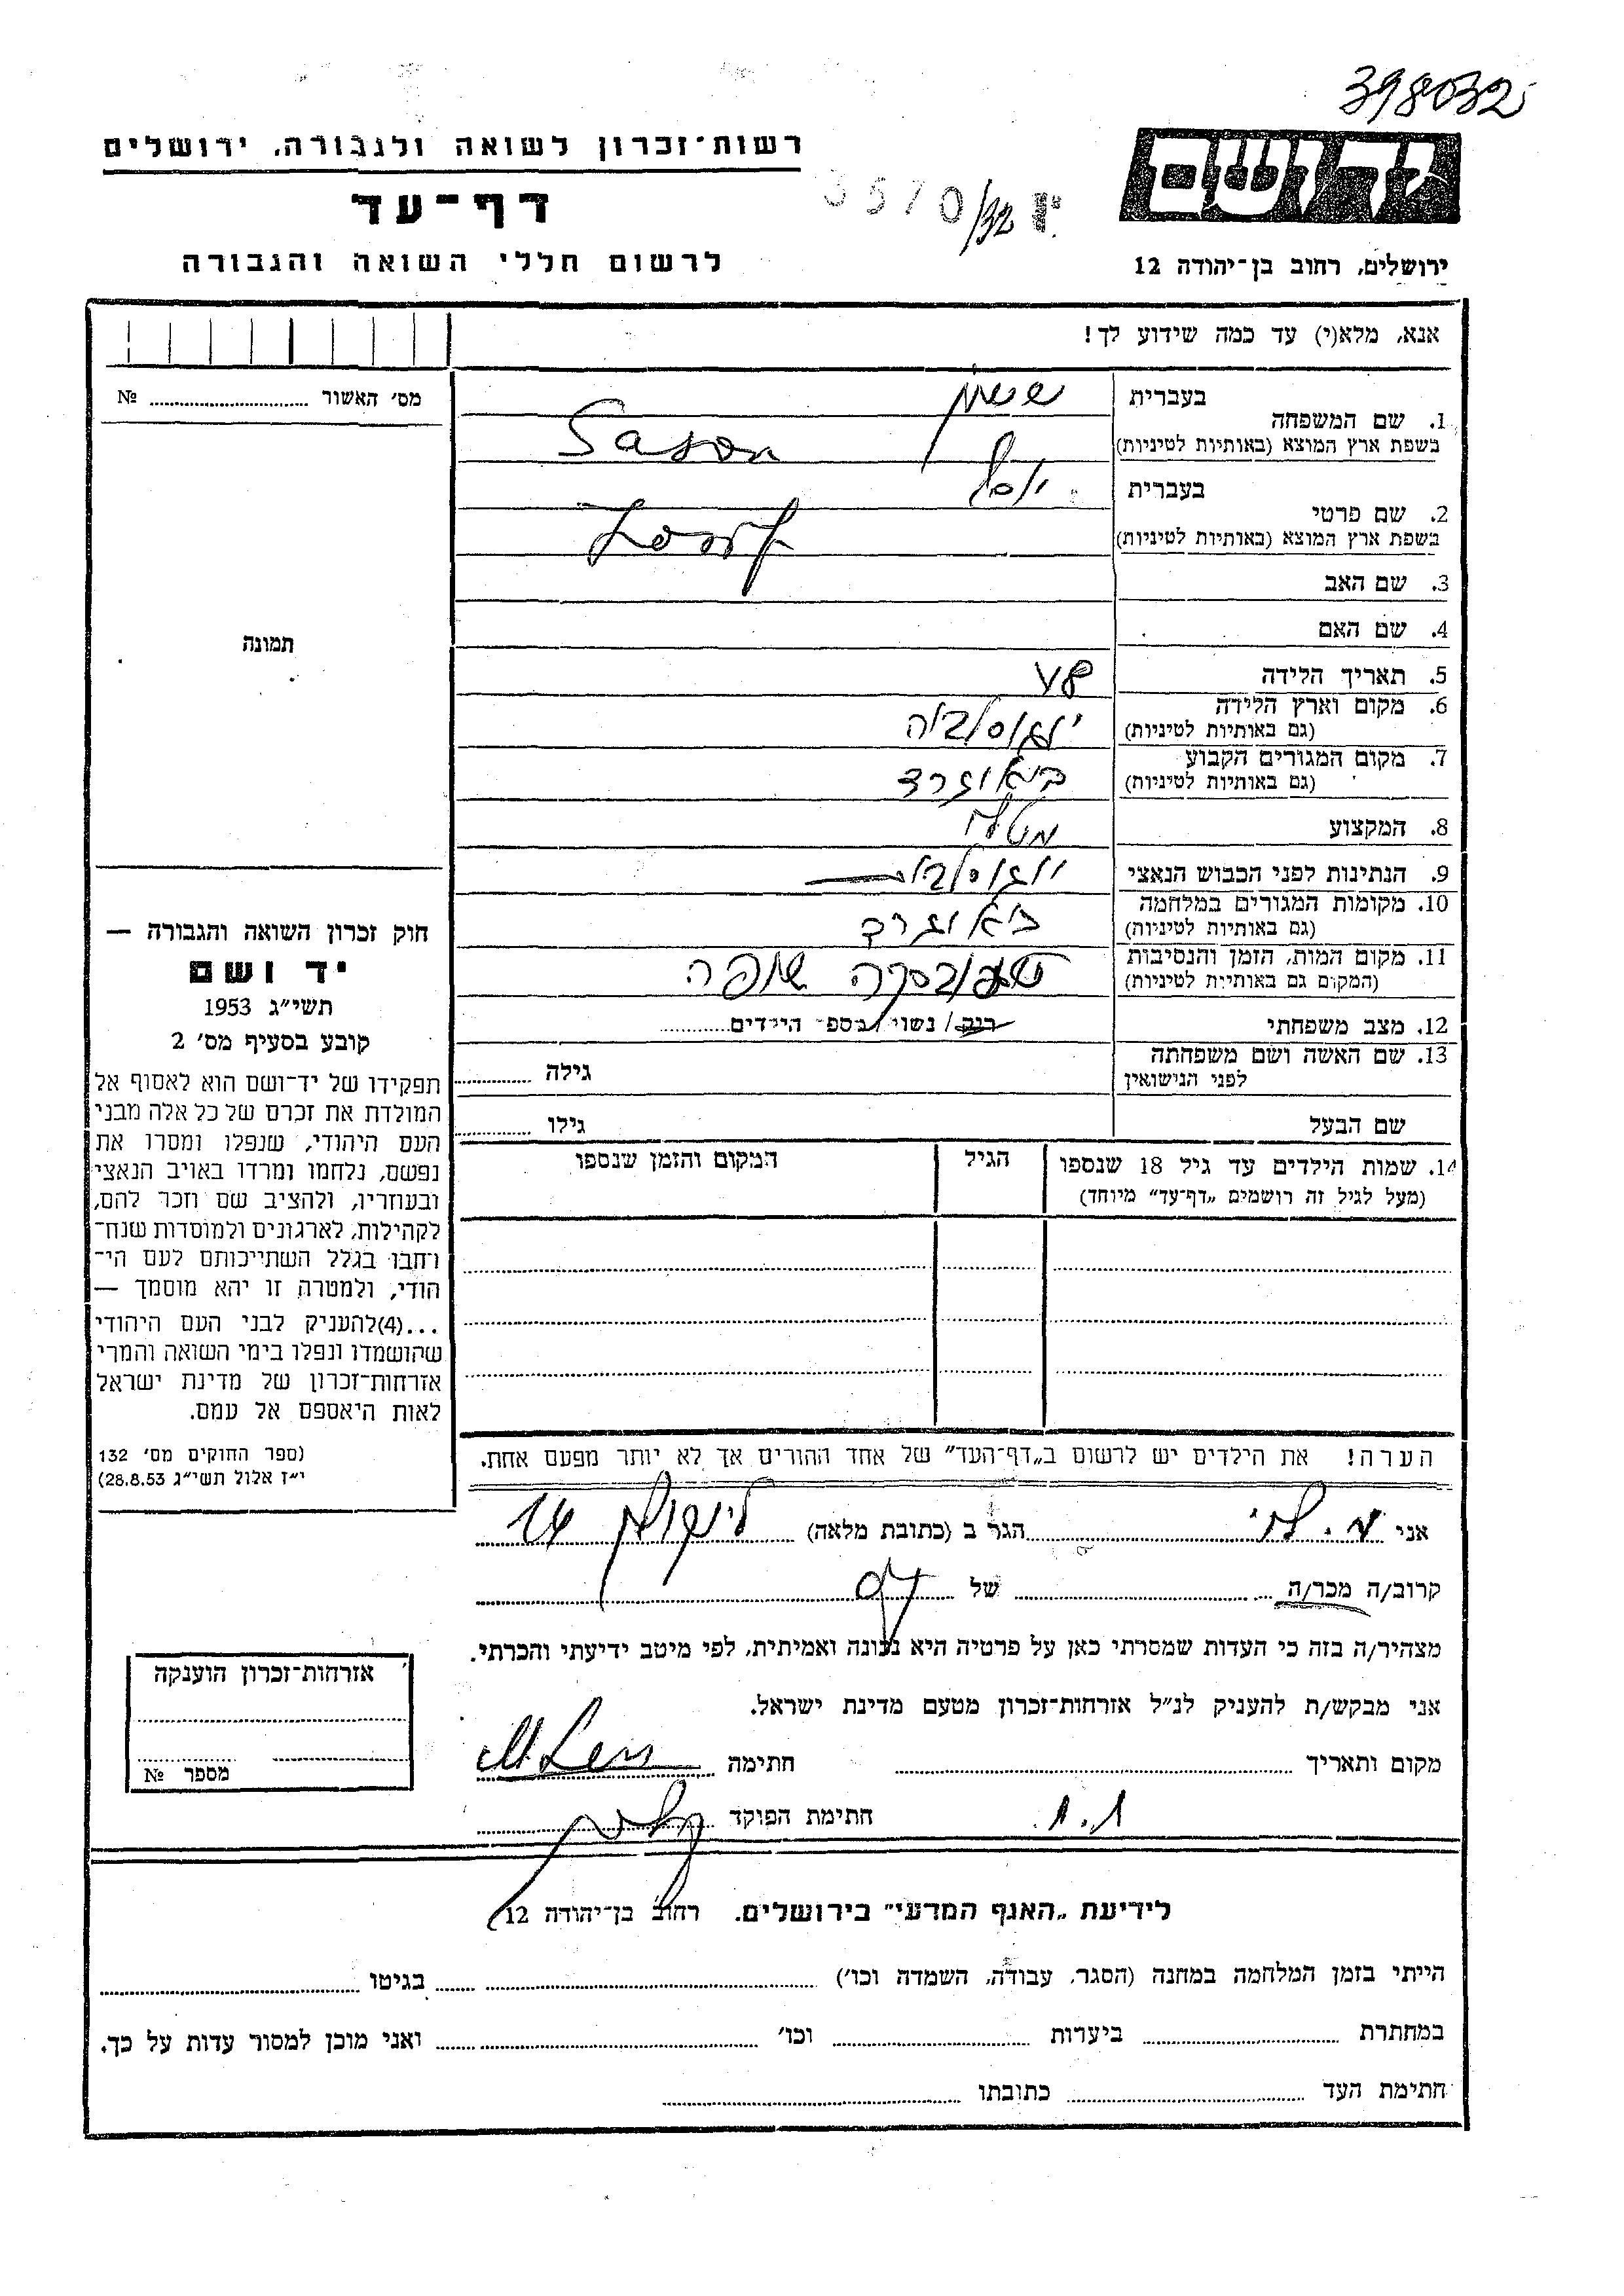 398032
רשות־זכרון לשואה ולגבורה, ירושלים
דף־עד
לרשום חללי השואה והגבורה
3570/32
ידושם
ירושלים, רחוב בן־יהודה 12
אנא, מלא(י) עד כמה שידוע לך!
מס׳ האשור № 
תמונה
1. שם המשפחה
בעברית ששון
בשפת ארץ המוצא (באותיות לטיניות) Sason
2. שם פרטי
בעברית יוסף
בשפת ארץ המוצא (באותיות לטיניות) Josef
3. שם האב
4. שם האם
5. תאריך הלידה
6. מקום וארץ הלידה יוגוסלביה
(גם באותיות לטיניות)
7. מקום המגורים הקבוע
(גם באותיות לטיניות)
8. המקצוע
9. הנתינות לפני הכבוש הנאצי
10. מקומות המגורים במלחמה
(גם באותיות לטיניות)
11. מקום המות, הזמן והנסיבות
(המקום גם באותיות לטיניות)
12. מצב משפחתי רוק/ נשוי / מספר הילדים
13. שם האשה ושם משפחתה
לפני הנישואין גילה
שם הבעל גילו
14. שמות הילדים עד גיל 18 שנספו
(מעל לגיל זה רושמים „דף־עד״ מיוחד)
הגיל
המקום והזמן שנספו
הערה! את הילדים יש לרשום ב„דף־העד״ של אחד ההורים אך לא יותר מפעם אחת.
חוק זכרון השואה והגבורה —
יד ושם
תשי״ג 1953
קובע בסעיף מס׳ 2
תפקידו של יד־ושם הוא לאסוף אל
המולדת את זכרם של כל אלה מבני
העם היהודי, שנפלו ומסרו את
נפשם, נלחמו ומרדו באויב הנאצי
ובעוזריו, ולהציב שם וזכר להם,
לקהילות, לארגונים ולמוסדות שנח־
רבו בגלל השתייכותם לעם הי־
הודי, ולמטרה זו יהא מוסמך —
...(4)להעניק לבני העם היהודי
שהושמדו ונפלו בימי השואה והמרי
אזרחות־זכרון של מדינת ישראל
לאות היאספם אל עמם.
(ספר החוקים מס׳ 132
י״ז אלול תשי״ג 28.8.53)
אני הגר ב (כתובת מלאה)
קרוב/ה מכר/ה של
מצהיר/ה בזה כי העדות שמסרתי כאן על פרטיה היא נכונה ואמיתית, לפי מיטב ידיעתי והכרתי.
אני מבקש/ת להעניק לנ״ל אזרחות־זכרון מטעם מדינת ישראל.
מקום ותאריך חתימה
חתימת הפוקד
אזרחות־זכרון הוענקה
מספר №
לידיעת „האגף המדעי״ בירושלים, רחוב בן־יהודה 12
הייתי בזמן המלחמה במחנה (הסגר, עבודה, השמדה וכו׳) בגיטו
במחתרת ביערות וכו׳ ואני מוכן למסור עדות על כך.
חתימת העד כתובתו